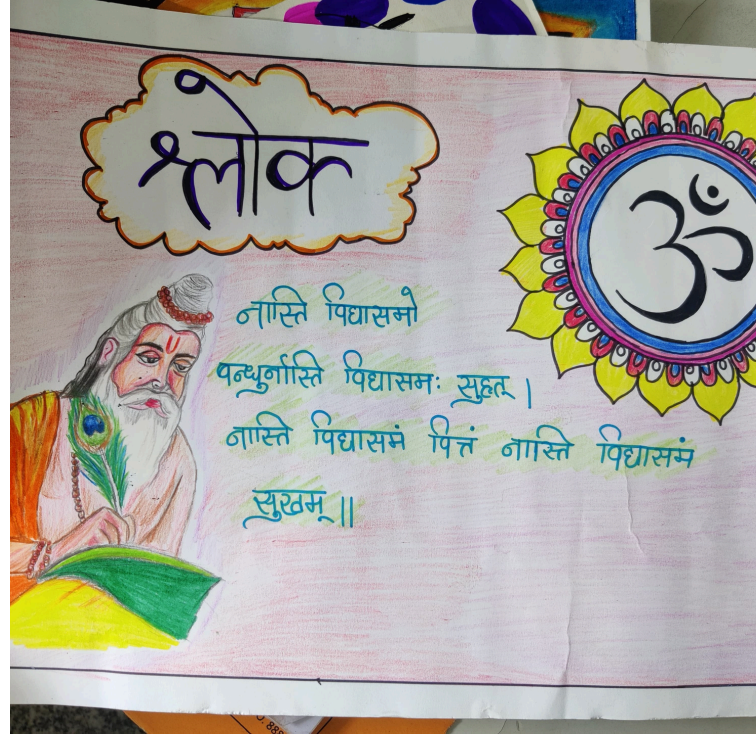 श्लोक
ॐ
नास्ति विद्यासमो
वन्धुर्नास्ति विद्यासमः सुहृत् ।
नास्ति विद्यासमं वित्तं नास्ति विद्यासमं
सुखम् ॥